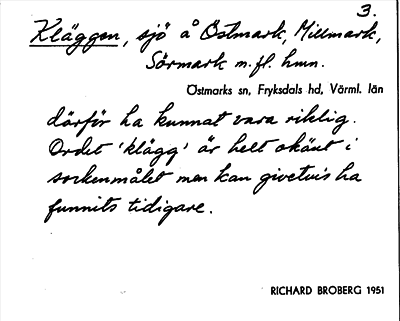 3.
Kläggen, sjö å Östmark, Millmark,
Sörmark m.fl. hmn.
Östmarks sn, Fryksdals hd, Värml. län
därför ha kunnat vara riklig.
Ordet 'klägg' är helt okänt i
sockenmålet men kan givetvis ha
funnits tidigare.
RICHARD BROBERG 1951